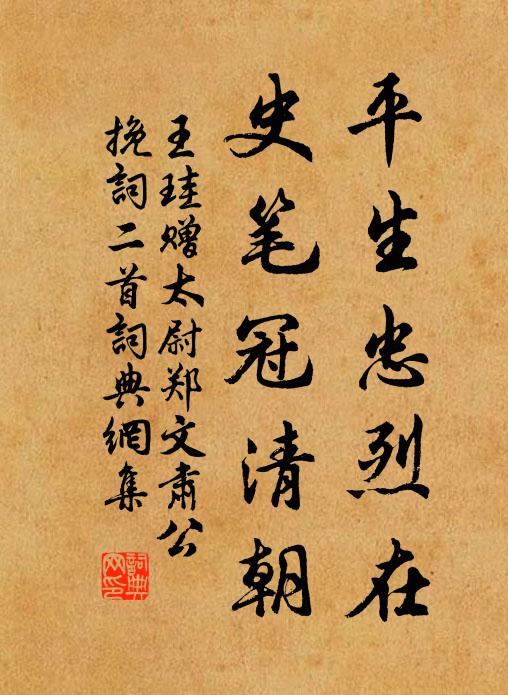 平生忠烈在
史笔冠清朝
王珪赠太尉郑文肃公
挽詞二首詞典網集
詞典
网印